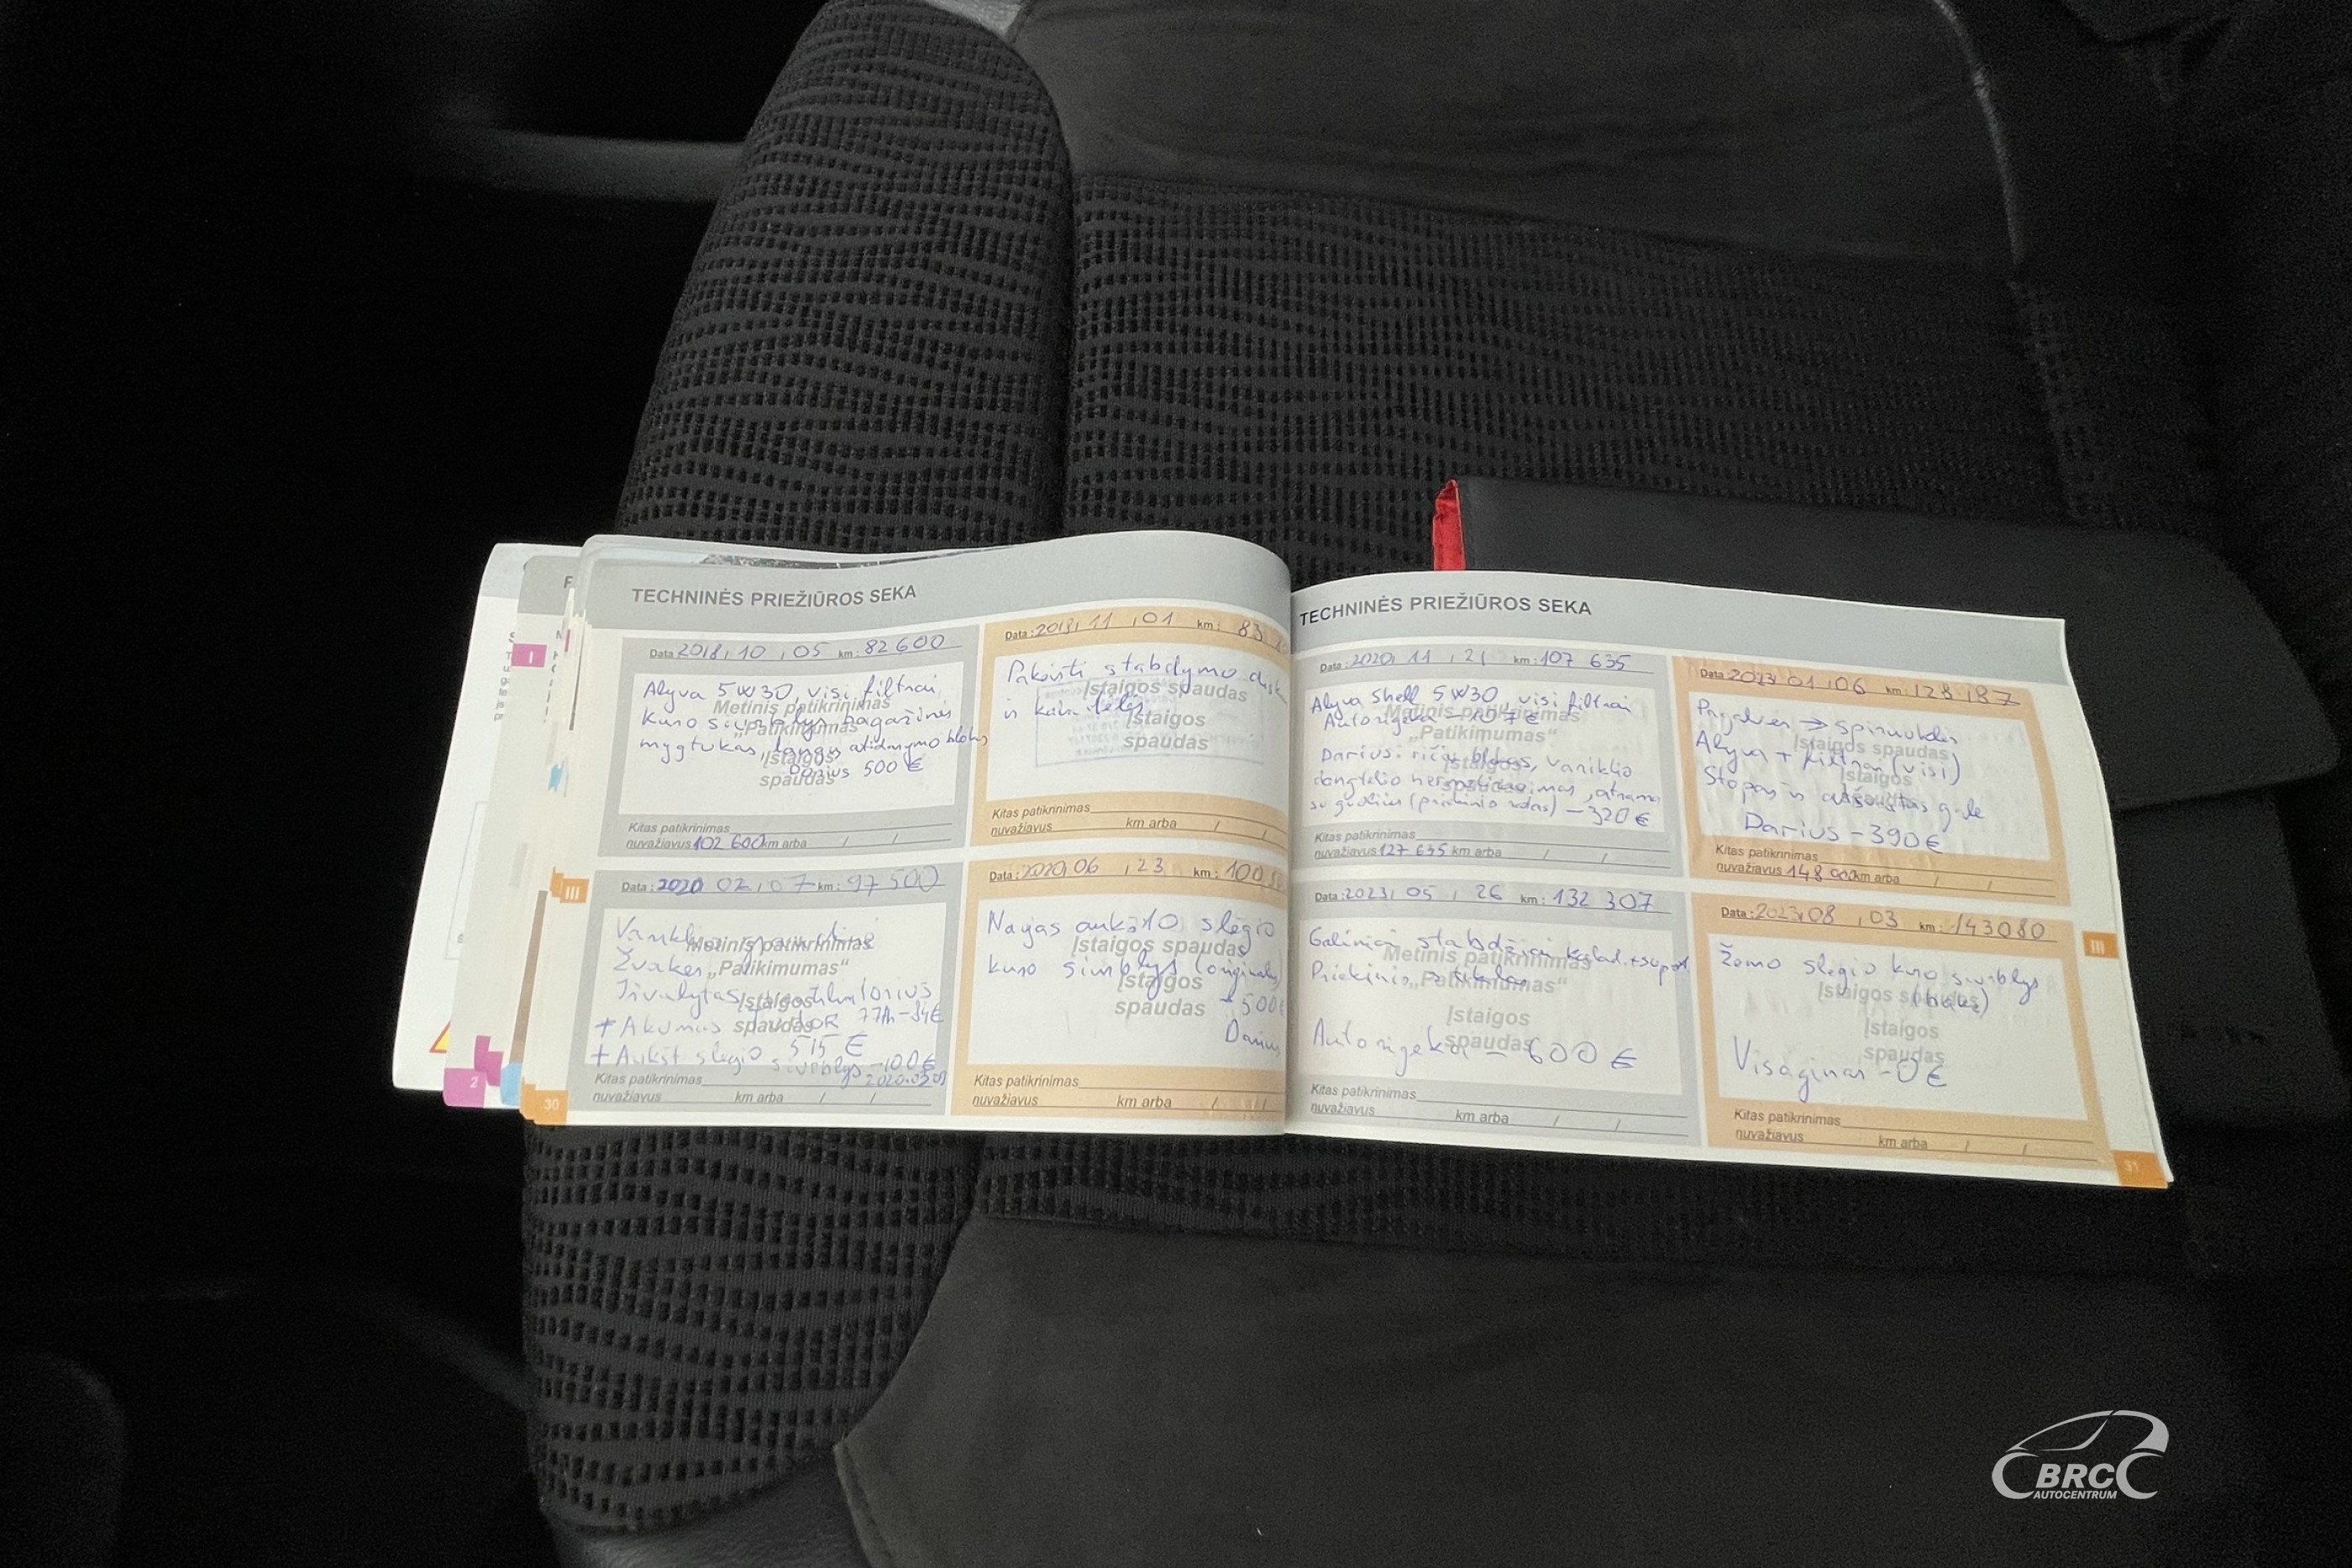 TECHNINĖS PRIEŽIŪROS SEKA
Data: 2018, 10, 05 km: 82 600
Alyva 5W30, visi filtrai
Metinis patikrinimas
Kuro siurblys bagažinės
„Patikimumas“
mygtukas, langų atidarymo blokas
Įstaigos
spaudas
Darius 500 €
Kitas patikrinimas
nuvažiavus 102 600 km arba / /
Data: 2018, 11, 01 km: 83
Pakeisti stabdymo disk
Įstaigos spaudas
ir kaladėlės
Įstaigos
spaudas
Kitas patikrinimas
nuvažiavus km arba / /
Data: 2020 02, 07 km: 97 500
Variklio
Metinis patikrinimas
Žvakės
„Patikimumas“
Išvalytas
Įstaigos
spaudas
+ Akumas 77Ah - 84€
515 €
+ Aukšt slėgio siurblys - 100 €
Kitas patikrinimas
nuvažiavus km arba / /
30
Data: 2020, 06, 23 km: 100
Naujas aukšto slėgio
Įstaigos spaudas
kuro siurblys (originalus)
Įstaigos
spaudas
- 500€
Darius
Kitas patikrinimas
nuvažiavus km arba / /
III
2
TECHNINĖS PRIEŽIŪROS SEKA
Data: 2020, 11, 21 km: 107 635
Alyva Shell 5W30 visi filtrai
Metinis patikrinimas
Autorigeva - 107 €
„Patikimumas“
Darius: ričių blokas, variklio
Įstaigos
spaudas
dangtelio hermetizavimas, atrama
su guoliu (priekinio rato) - 320 €
Kitas patikrinimas
nuvažiavus 127 635 km arba / /
Data: 2023 01, 06 km: 128 187
Pagalvės → spiruoklės
Įstaigos spaudas
Alyva + filtrai (visi)
Įstaigos
spaudas
Stopas ir gale
Darius - 390 €
Kitas patikrinimas
nuvažiavus 148 000 km arba / /
Data: 2023, 05, 26 km: 132 307
Galiniai stabdžiai kalad. + suport
Metinis patikrinimas
Priekinis stiklas
„Patikimumas“
Įstaigos
spaudas
Autorigeka - 600 €
Kitas patikrinimas
nuvažiavus km arba / /
Data: 2023, 08, 03 km: 143080
Žemo slėgio kuro siurblys
Įstaigos spaudas
(bake)
Įstaigos
spaudas
Visaginas - 0 €
Kitas patikrinimas
nuvažiavus km arba / /
III
31
BRC
AUTOCENTRUM